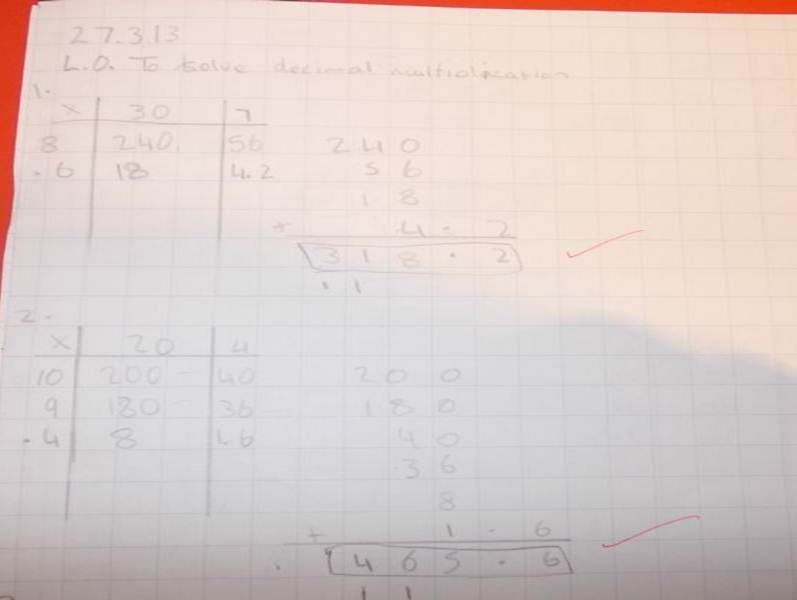 27.3.13
L.O. To solve decimal multiplication
1.
× 30 7
8 240 56 240
.6 18 4.2 56
18
+ 4.2
318.2
11
2.
× 20 4
10 200 40 200
9 180 36 180
.4 8 1.6 40
36
8
+ 1.6
465.6
11